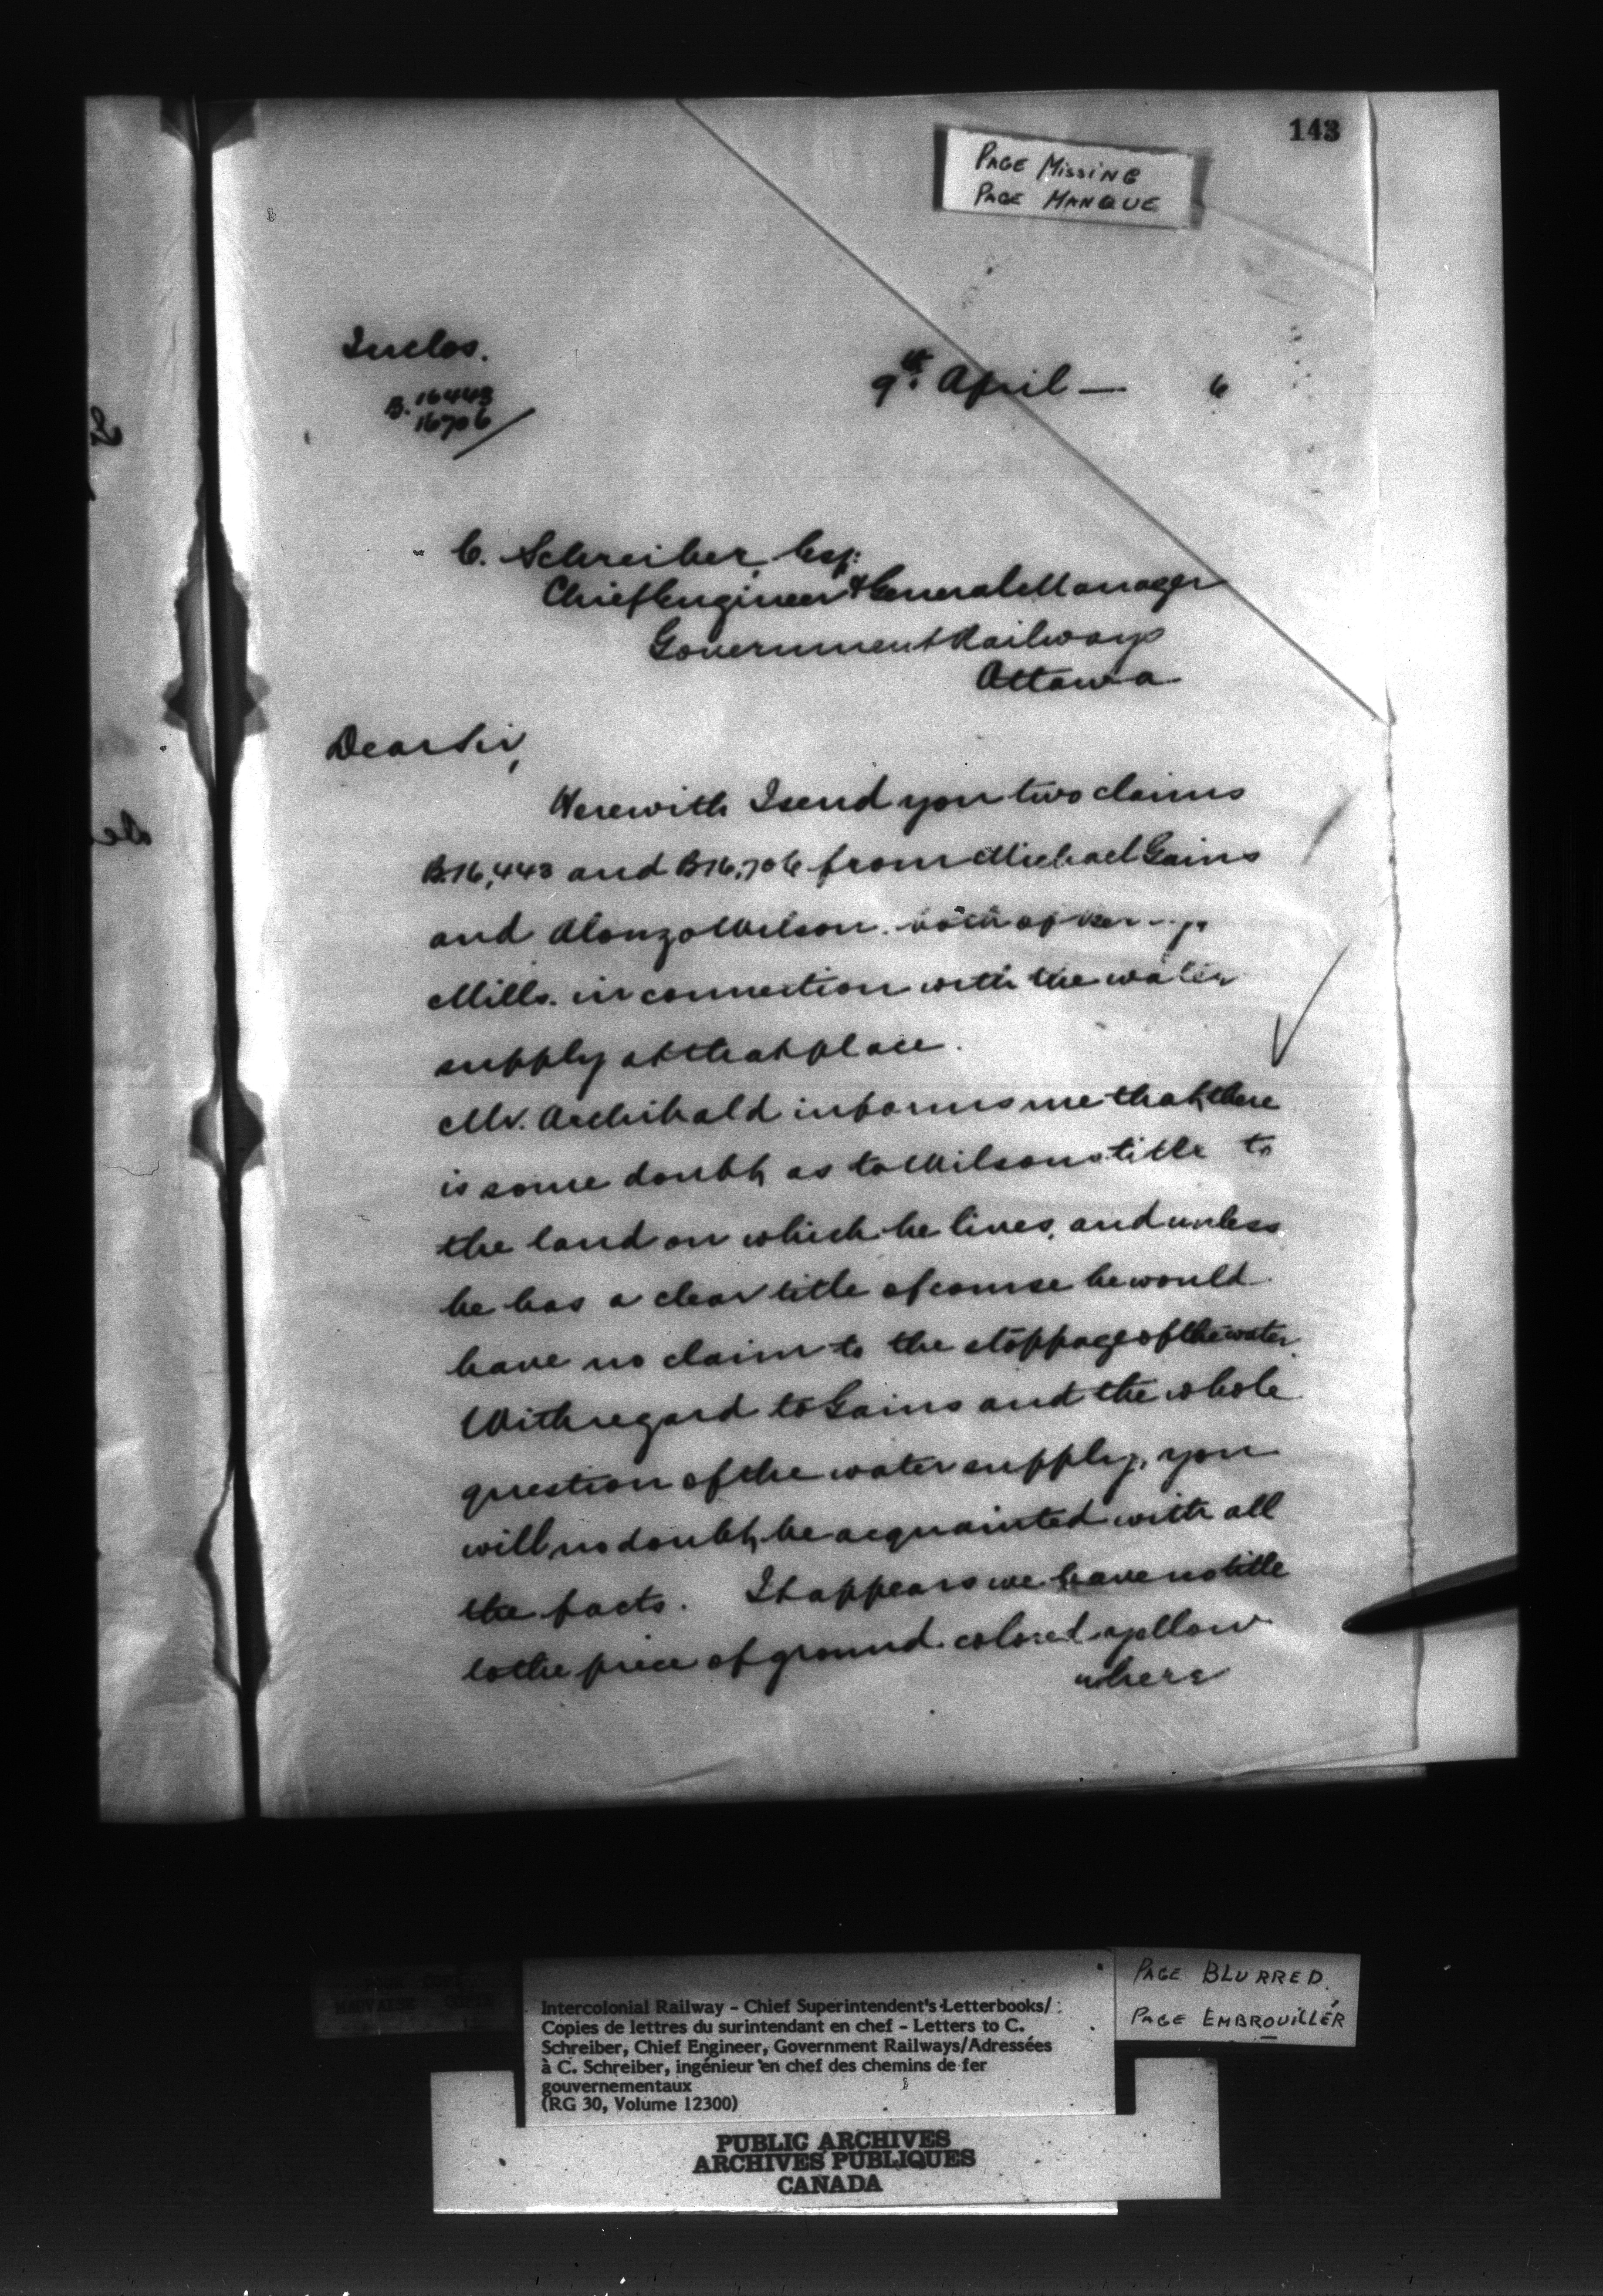 143
PAGE MISSING
PAGE MANQUE
Inclos.
9th. April — 6
B. 16443
16706
C. Schreiber, Esq:
Chief Engineer & General Manager
Government Railways
Ottawa
Dear Sir,
Herewith I send you two claims
B.16,443 and B16,706 from Michael Gains
and Alonzo Wilson. both of
Mills. in connection with the water
supply at that place.
Mr. Archibald informs me that, there
is some doubt, as to Wilsons title to
the land on which he lives, and unless
he has a clear title of course he would
have no claim to the stoppage of the water.
With regard to Gains and the whole
question of the water supply, you
will no doubt, be acquainted with all
the facts. It appears we have no title
to the piece of ground colored yellow
where
Intercolonial Railway - Chief Superintendent's Letterbooks/
Copies de lettres du surintendant en chef - Letters to C.
Schreiber, Chief Engineer, Government Railways/Adressées
à C. Schreiber, ingénieur en chef des chemins de fer
gouvernementaux
(RG 30, Volume 12300)
PAGE BLURRED
PAGE EMBROUILLÉR
PUBLIC ARCHIVES
ARCHIVES PUBLIQUES
CANADA